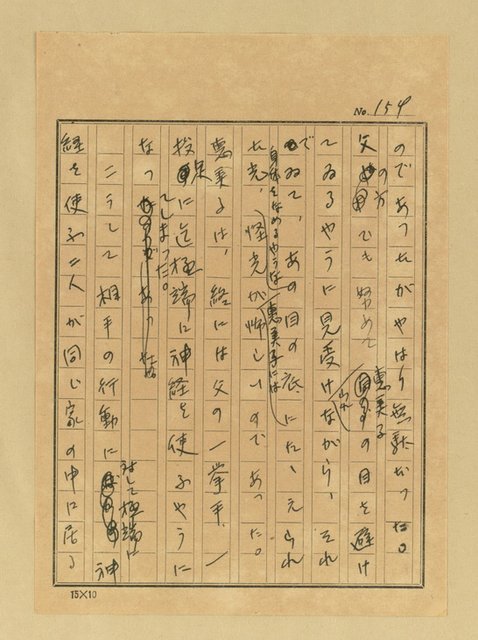 No. 154
のであつたがやはり無駄だつた。
父の方でも努めて恵美子の目を避け
てゐるやうに見受けながら、それ
でゐて、あの目の底にたゝえられ
身体をなめるやうな
た光、怪光が恵美子には怖しいのであつた。
恵美子は、終には父の一挙手、一
投足に迄極端に神経を使ふやうに
なつてしまつた。
こうして相手の行動に対して極端に神
経を使ふ二人が同じ家の中に居る
15×10